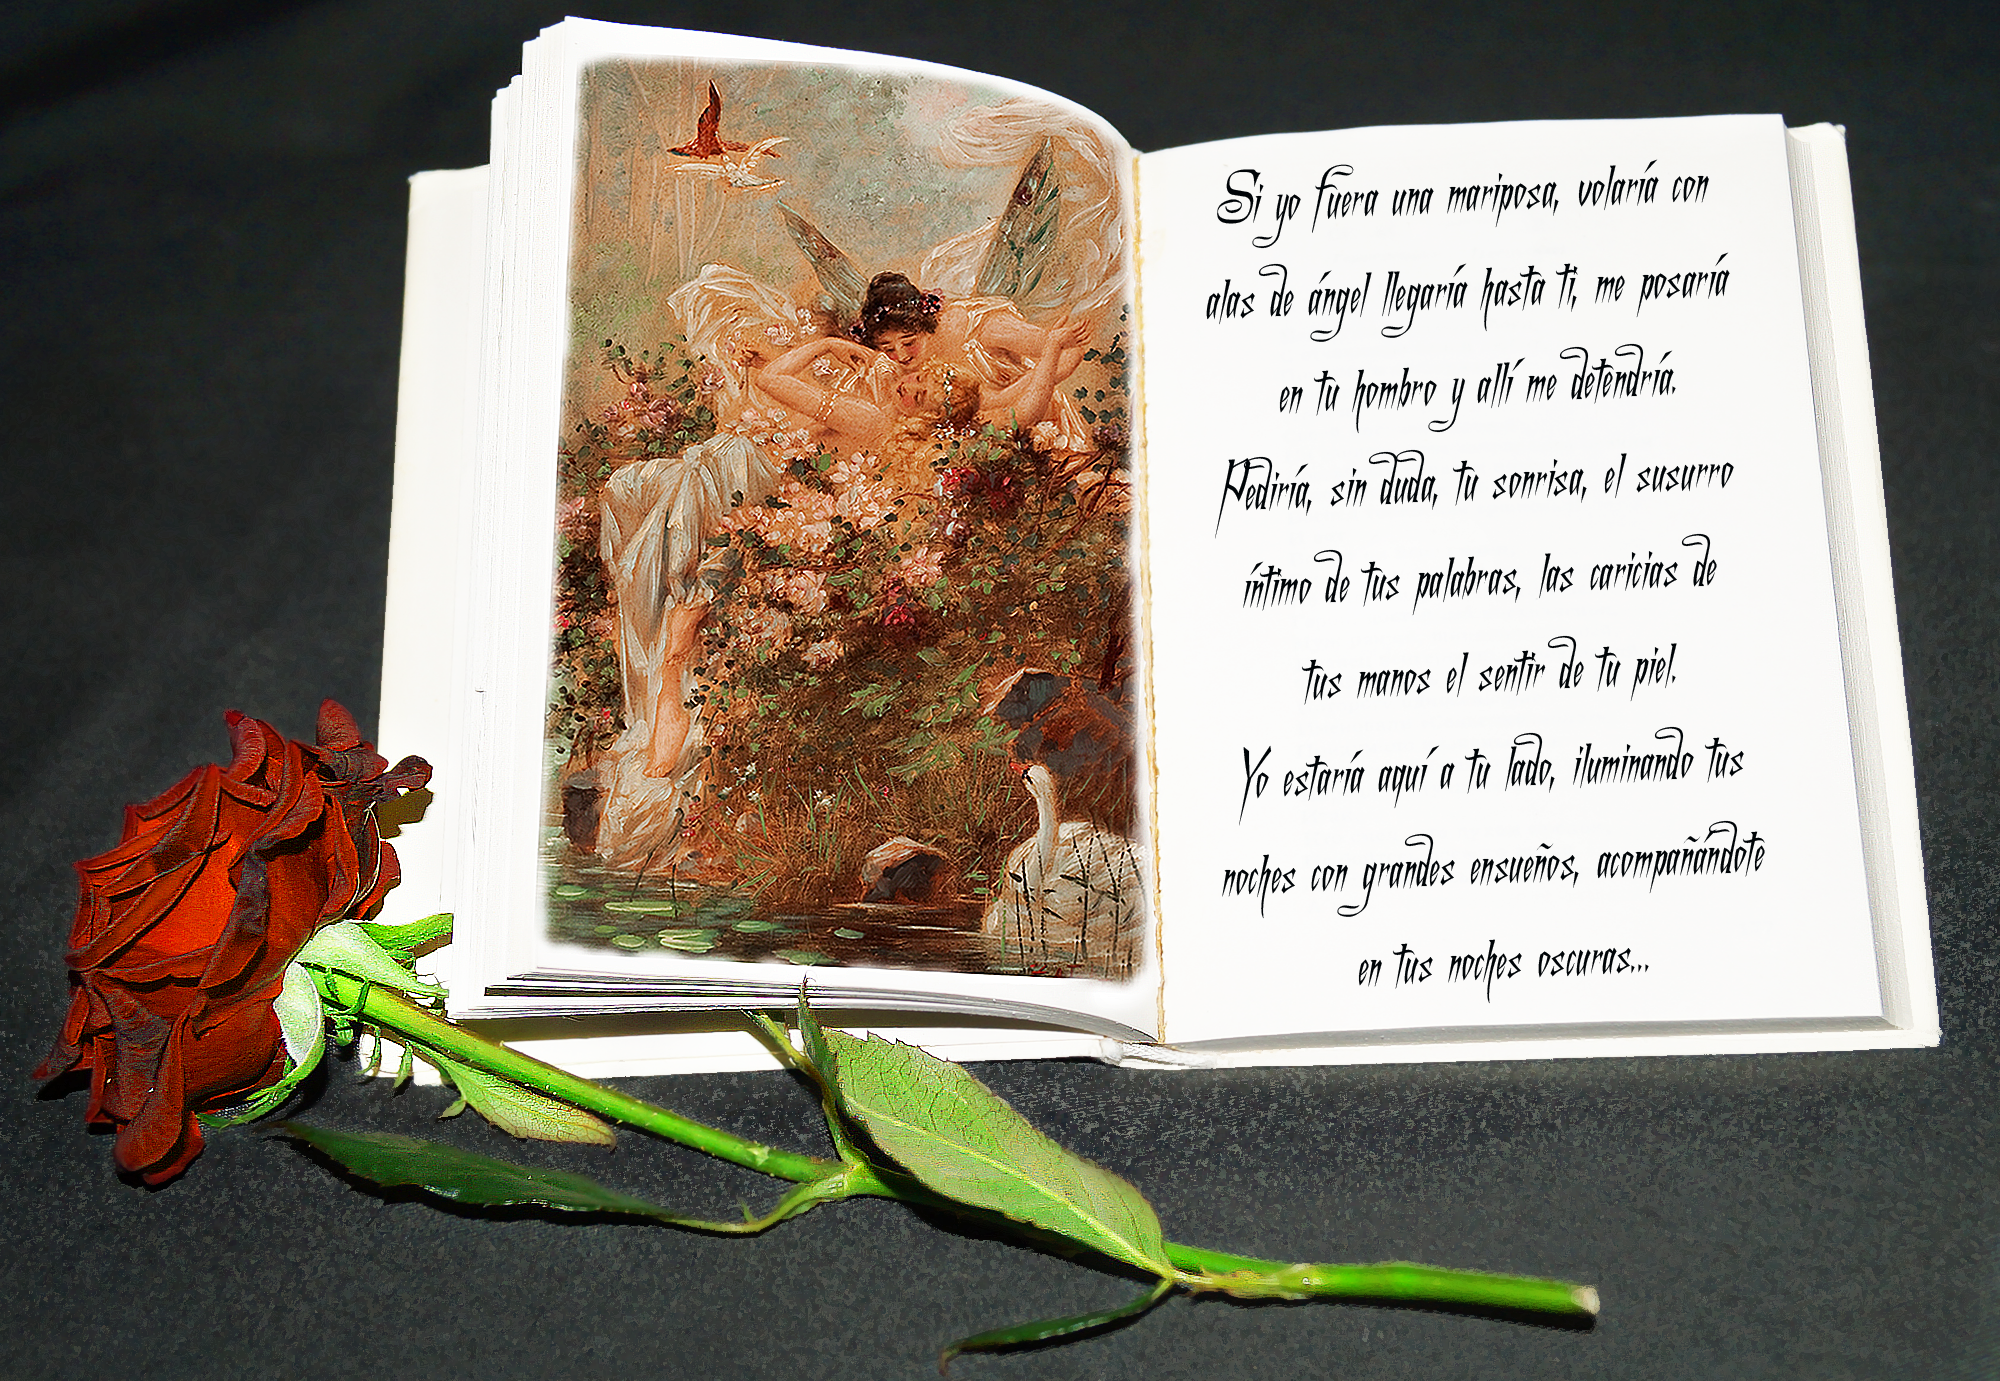 Si yo fuera una mariposa, volaría con
alas de ángel llegaría hasta ti, me posaría
en tu hombro y allí me detendría.
Pediría, sin duda, tu sonrisa, el susurro
íntimo de tus palabras, las caricias de
tus manos el sentir de tu piel.
Yo estaría aquí a tu lado, iluminando tus
noches con grandes ensueños, acompañándote
en tus noches oscuras...